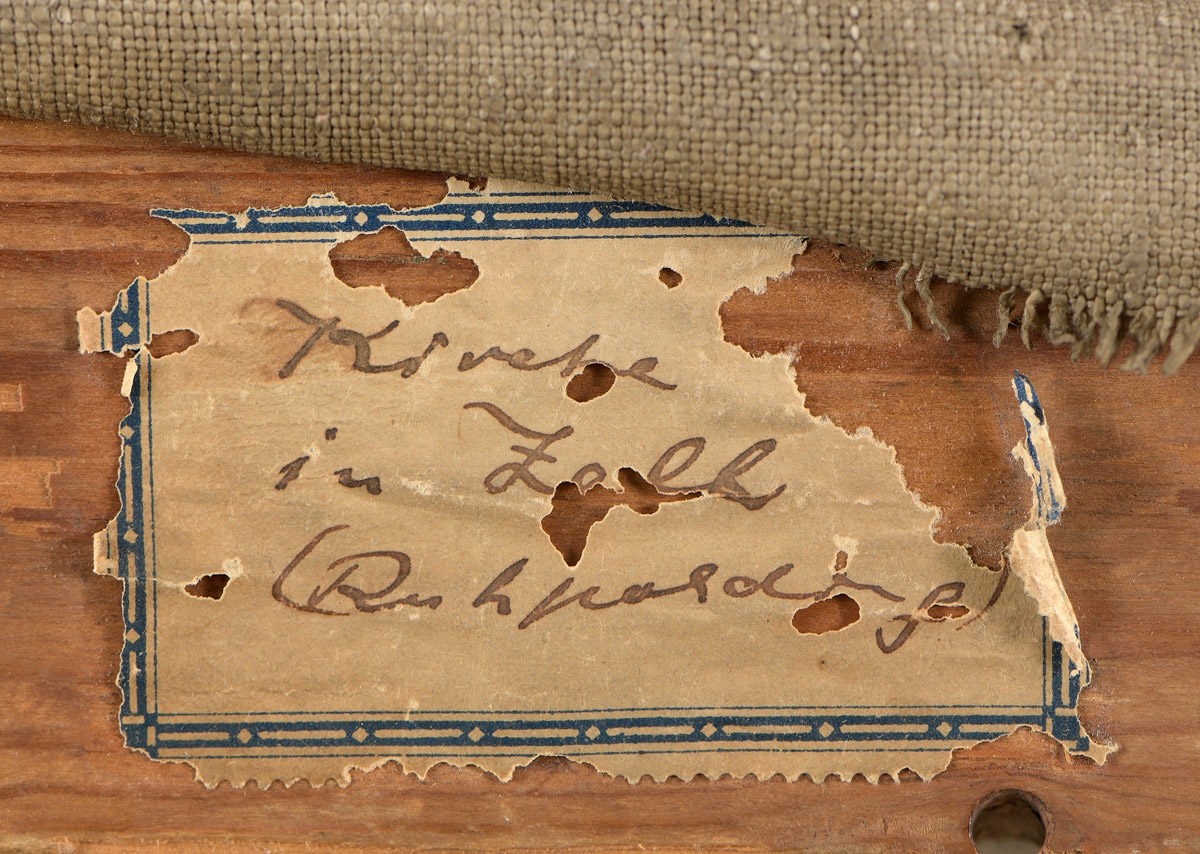 Kirche
in Zell
(Ruhpolding)